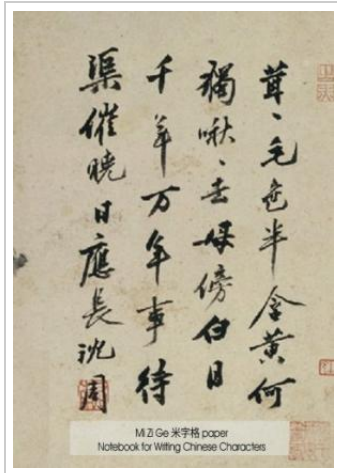 茸〻毛色半含黄何
獨啾〻去母傍白日
千年万年事待
渠催曉日應長沈周
MiZiGe 米字格 paper
Notebook for Writing Chinese Characters